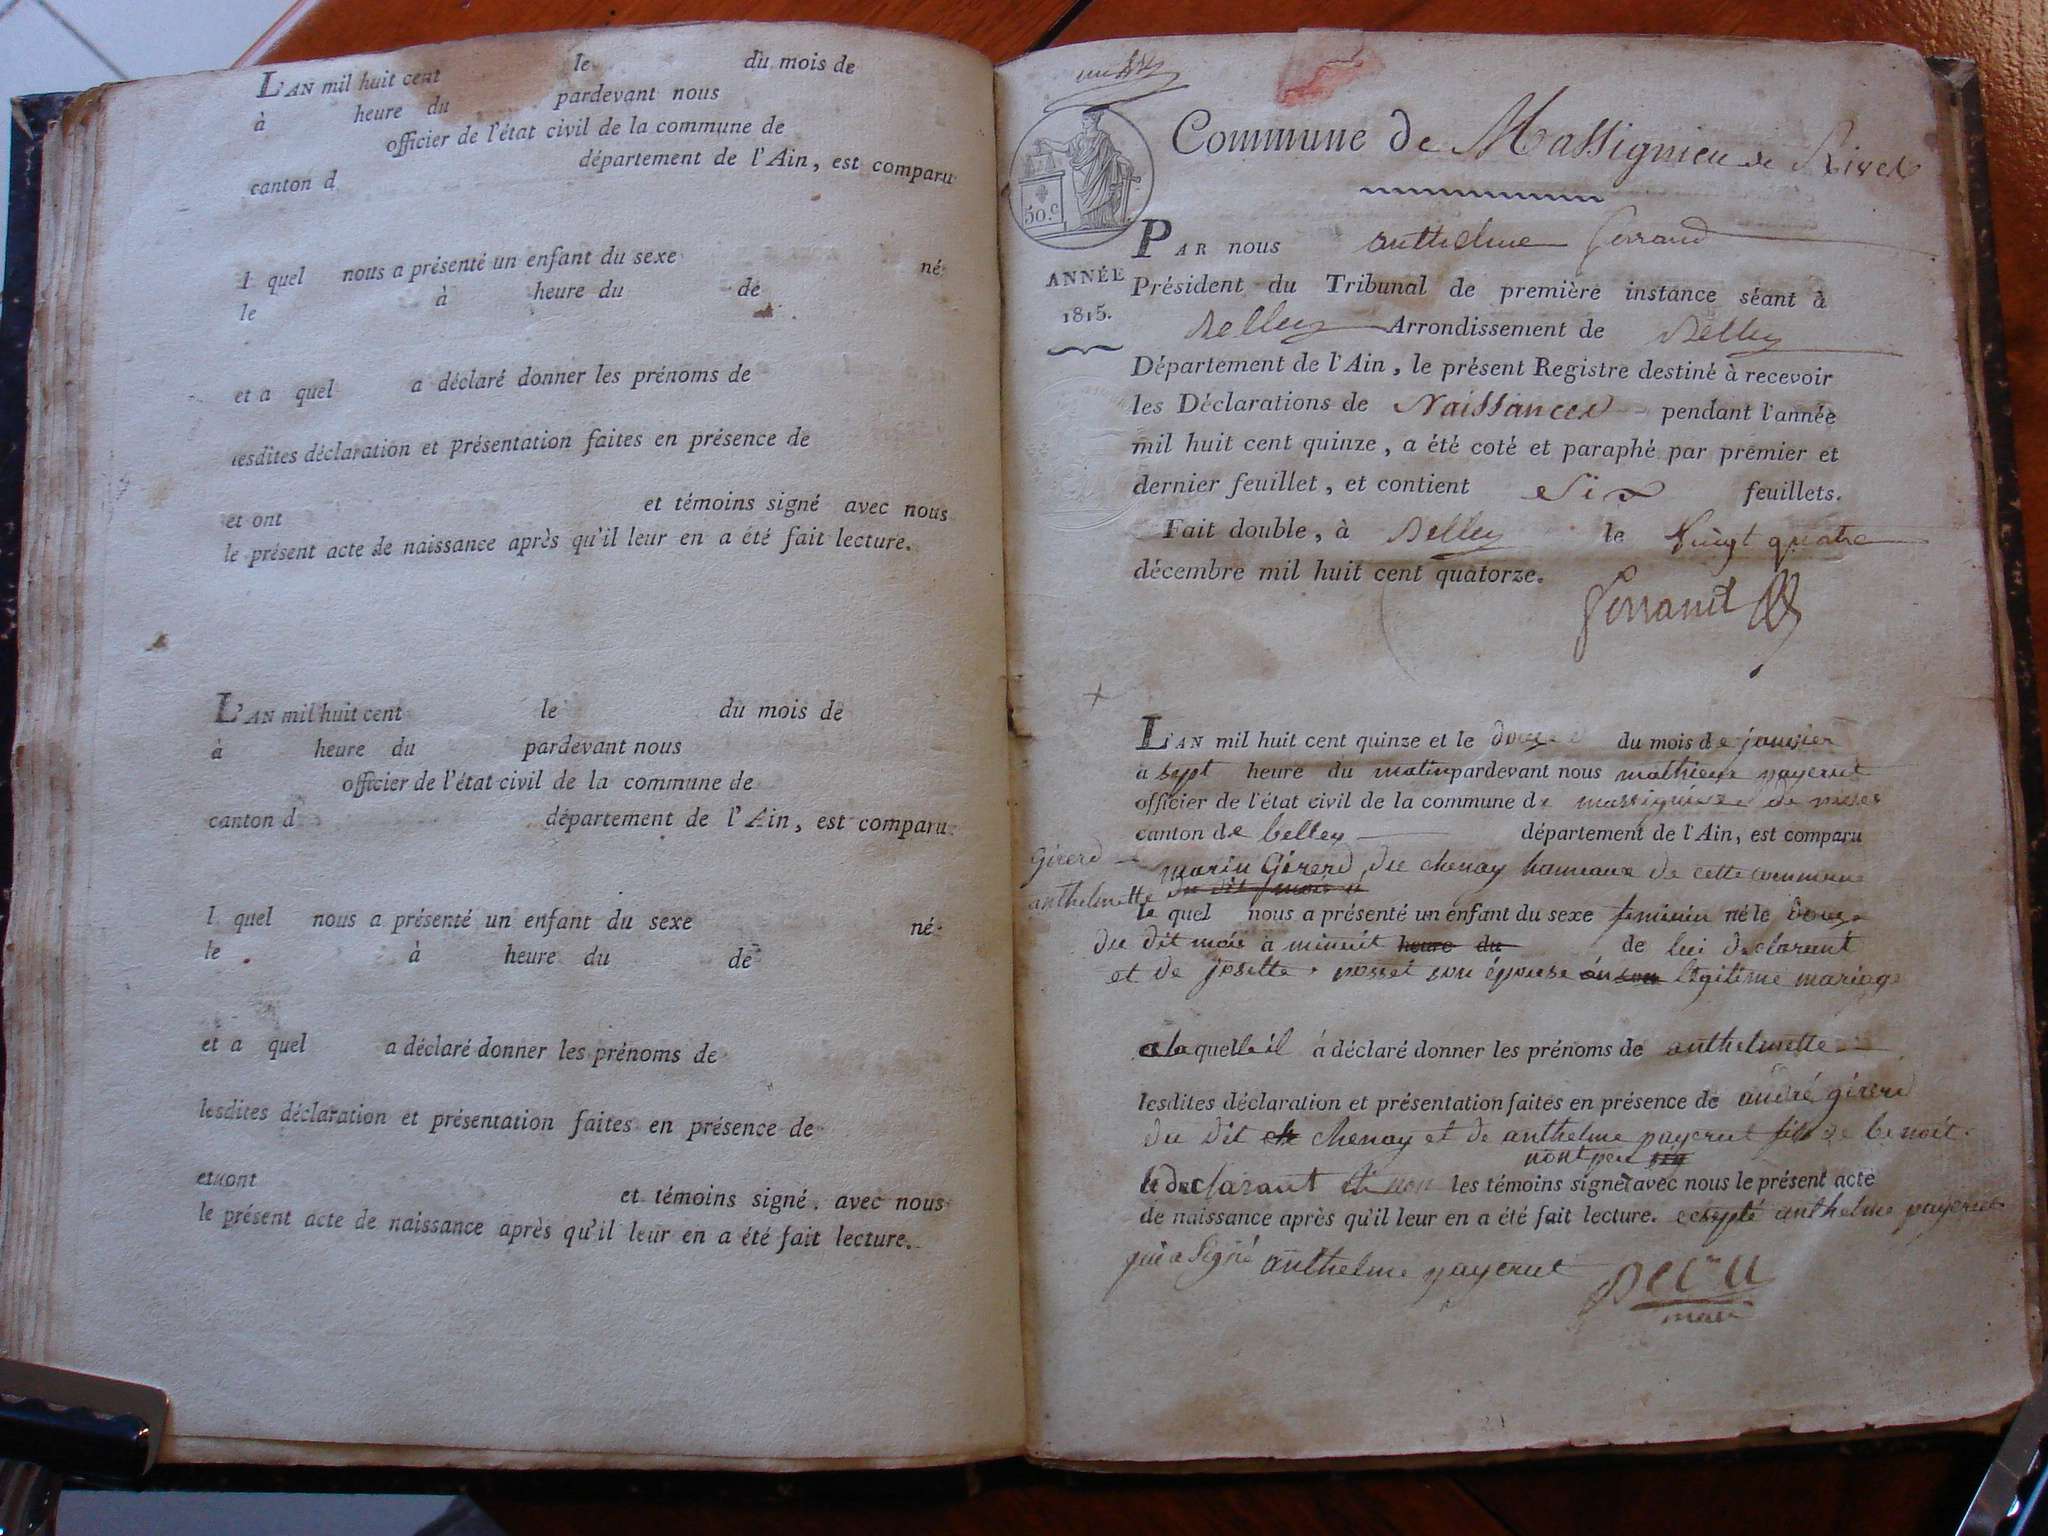 L'AN mil huit cent le du mois de
à heure du pardevant nous
officier de l'état civil de la commune de
canton d département de l'Ain, est comparu
l quel nous a présenté un enfant du sexe né
le à heure du de
et a quel a déclaré donner les prénoms de
lesdites déclaration et présentation faites en présence de
et ont et témoins signé avec nous
le présent acte de naissance après qu'il leur en a été fait lecture.
L'AN mil huit cent le du mois de
à heure du pardevant nous
officier de l'état civil de la commune de
canton d département de l'Ain, est comparu
l quel nous a présenté un enfant du sexe né
le à heure du de
et a quel a déclaré donner les prénoms de
lesdites déclaration et présentation faites en présence de
et ont et témoins signé avec nous
le présent acte de naissance après qu'il leur en a été fait lecture.
50.c
Commune de Massignieu de Rives
PAR nous anthelme ferrand
ANNÉE
1815.
Président du Tribunal de première instance séant à
Belley Arrondissement de Belley
Département de l'Ain, le présent Registre destiné à recevoir
les Déclarations de Naissances pendant l'année
mil huit cent quinze, a été coté et paraphé par premier et
dernier feuillet, et contient Six feuillets.
Fait double, à Belley le Vingt quatre
décembre mil huit cent quatorze.
ferrand
L'AN mil huit cent quinze et le douze du mois de janvier
a sept heure du matin pardevant nous mathieu payerne
officier de l'état civil de la commune de massignieu de rives
canton de belley département de l'Ain, est comparu
Girerd
anthelmette
marin Girerd du chenay hameaux de cette commune
le quel nous a présenté un enfant du sexe feminin né le douze
du dit mois a minuit heure du de lui déclarant
et de josette son épouse légitime mariage
a la quelle il à déclaré donner les prénoms de anthelmette
lesdites déclaration et présentation faites en présence de andré girerd
du dit chenay et de anthelme payerne fils de benoit
nont peu
le declarant les témoins signer avec nous le présent acte
de naissance après qu'il leur en a été fait lecture. excepté anthelme payerne
qui a signé anthelme payerne
maire